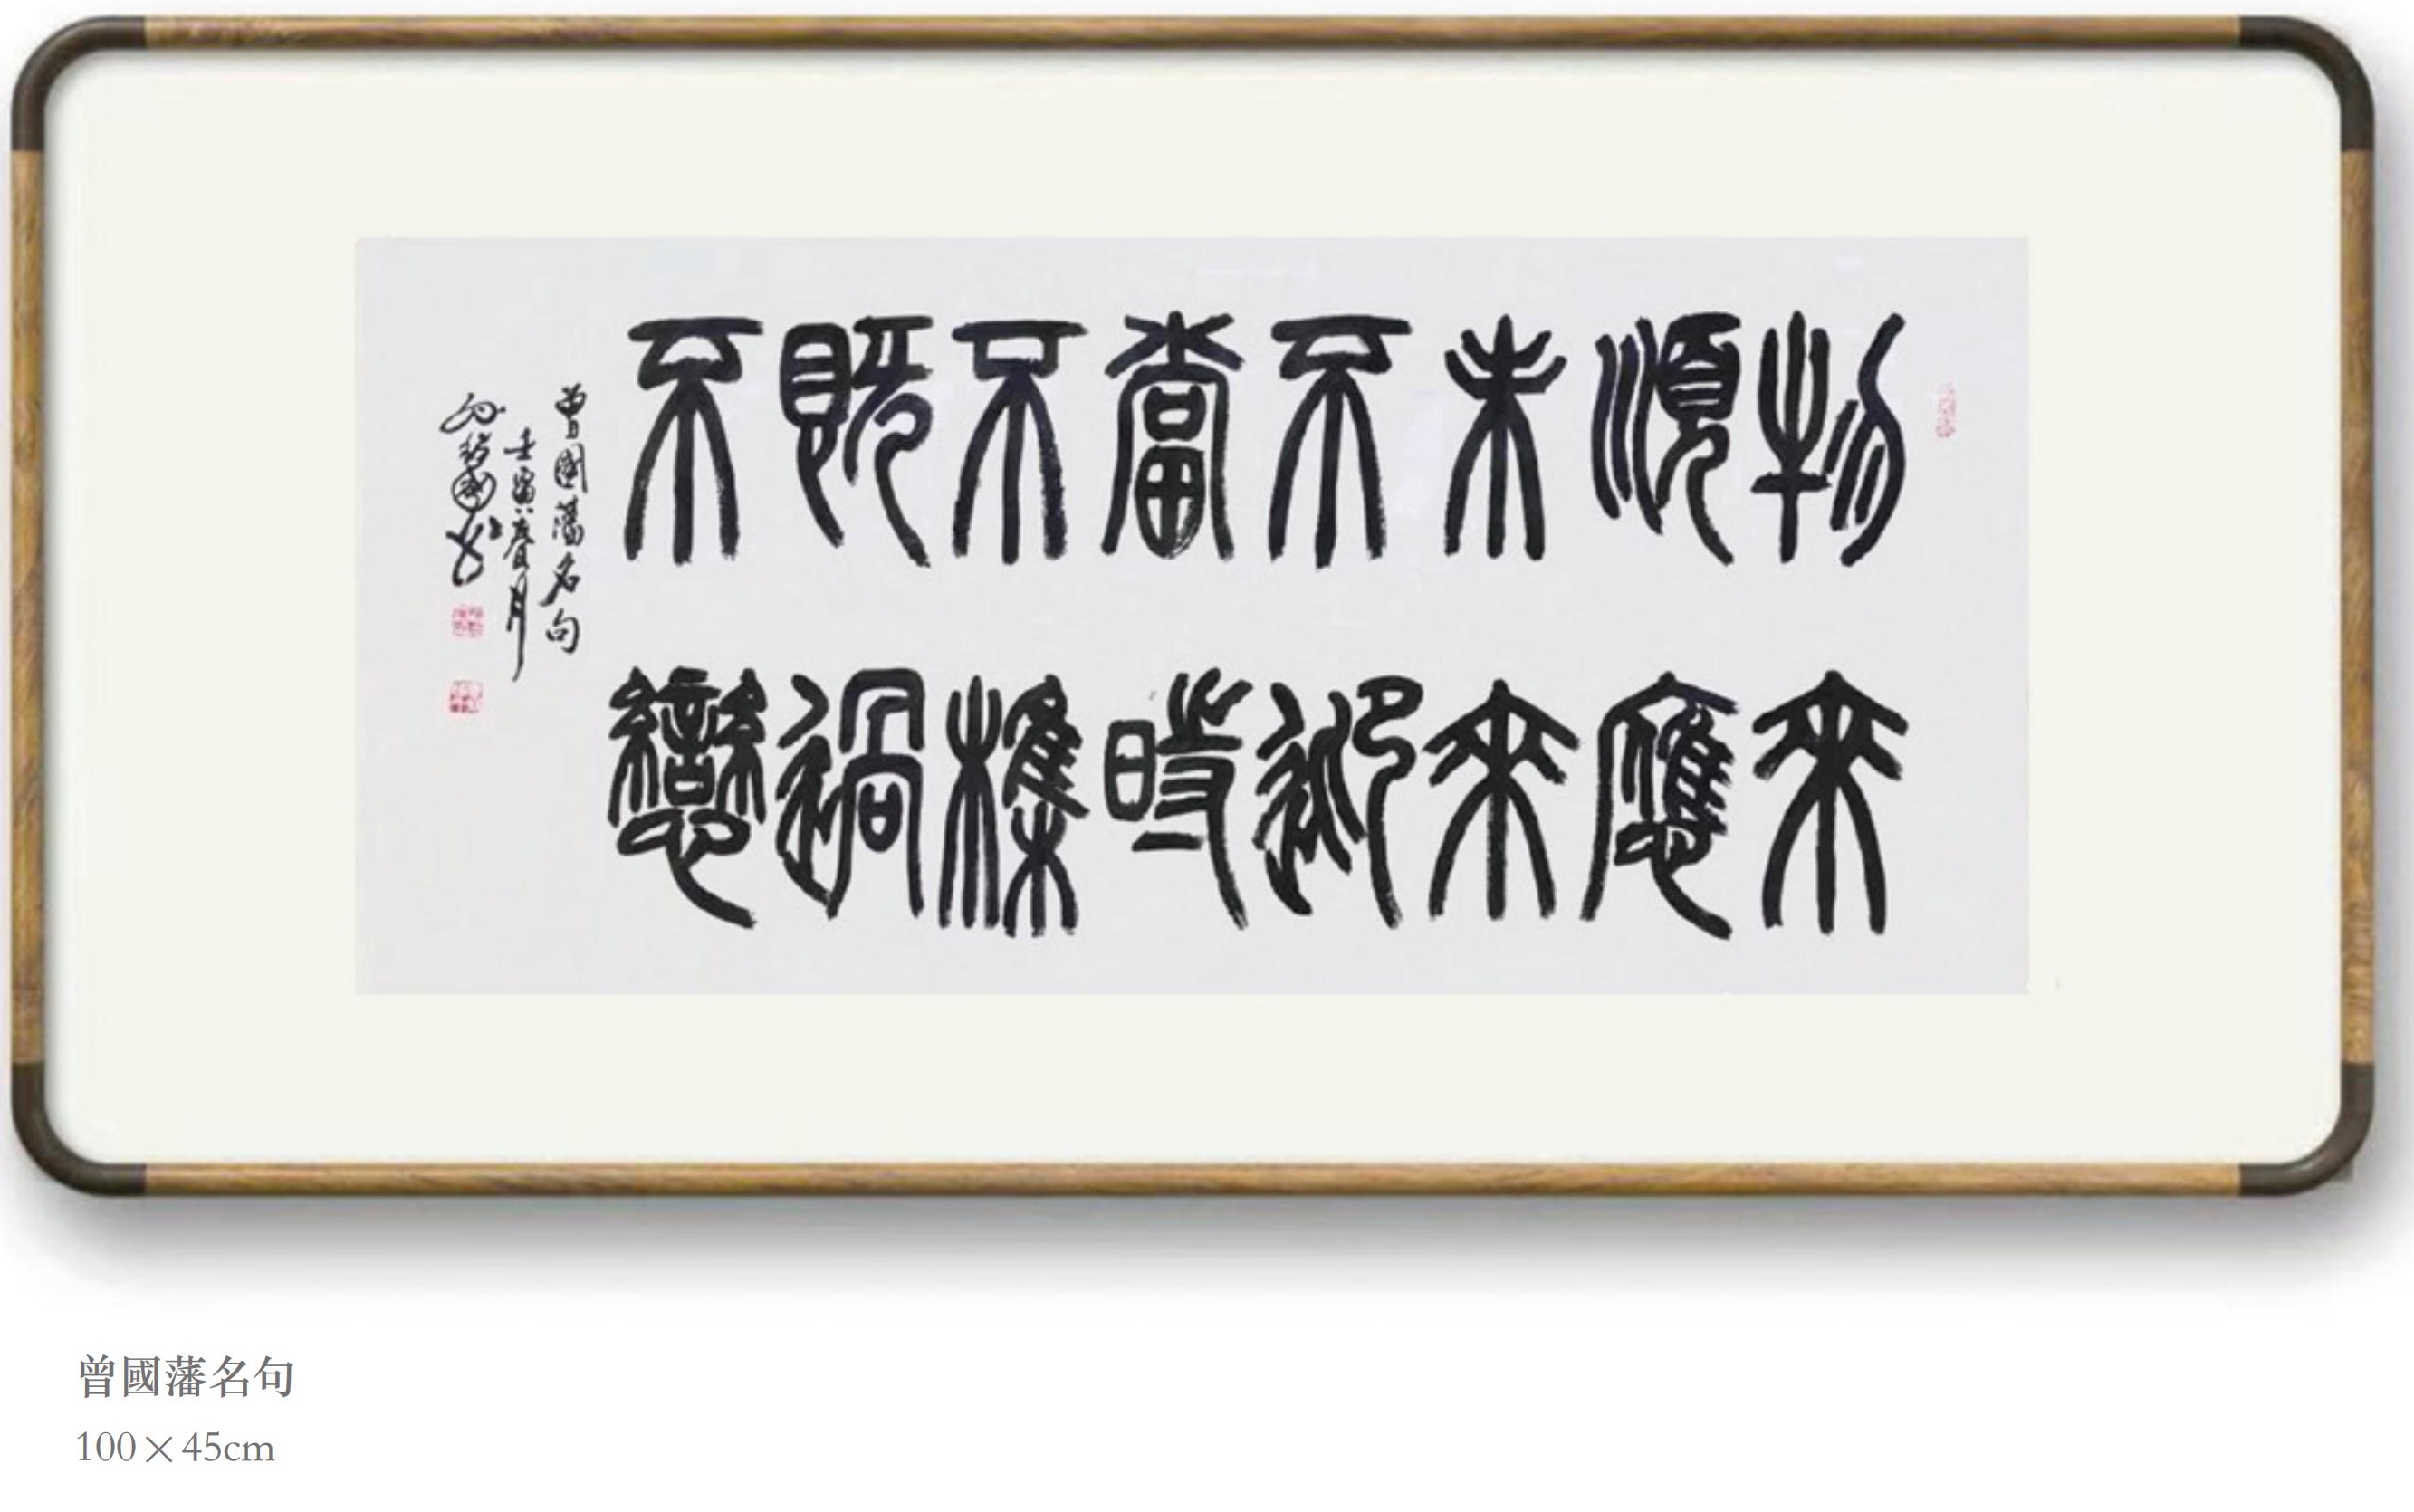 物來
順應
未來
不迎
當時
不雜
既過
不戀
曾國藩名句
壬寅春月
曾國藩名句
100×45cm